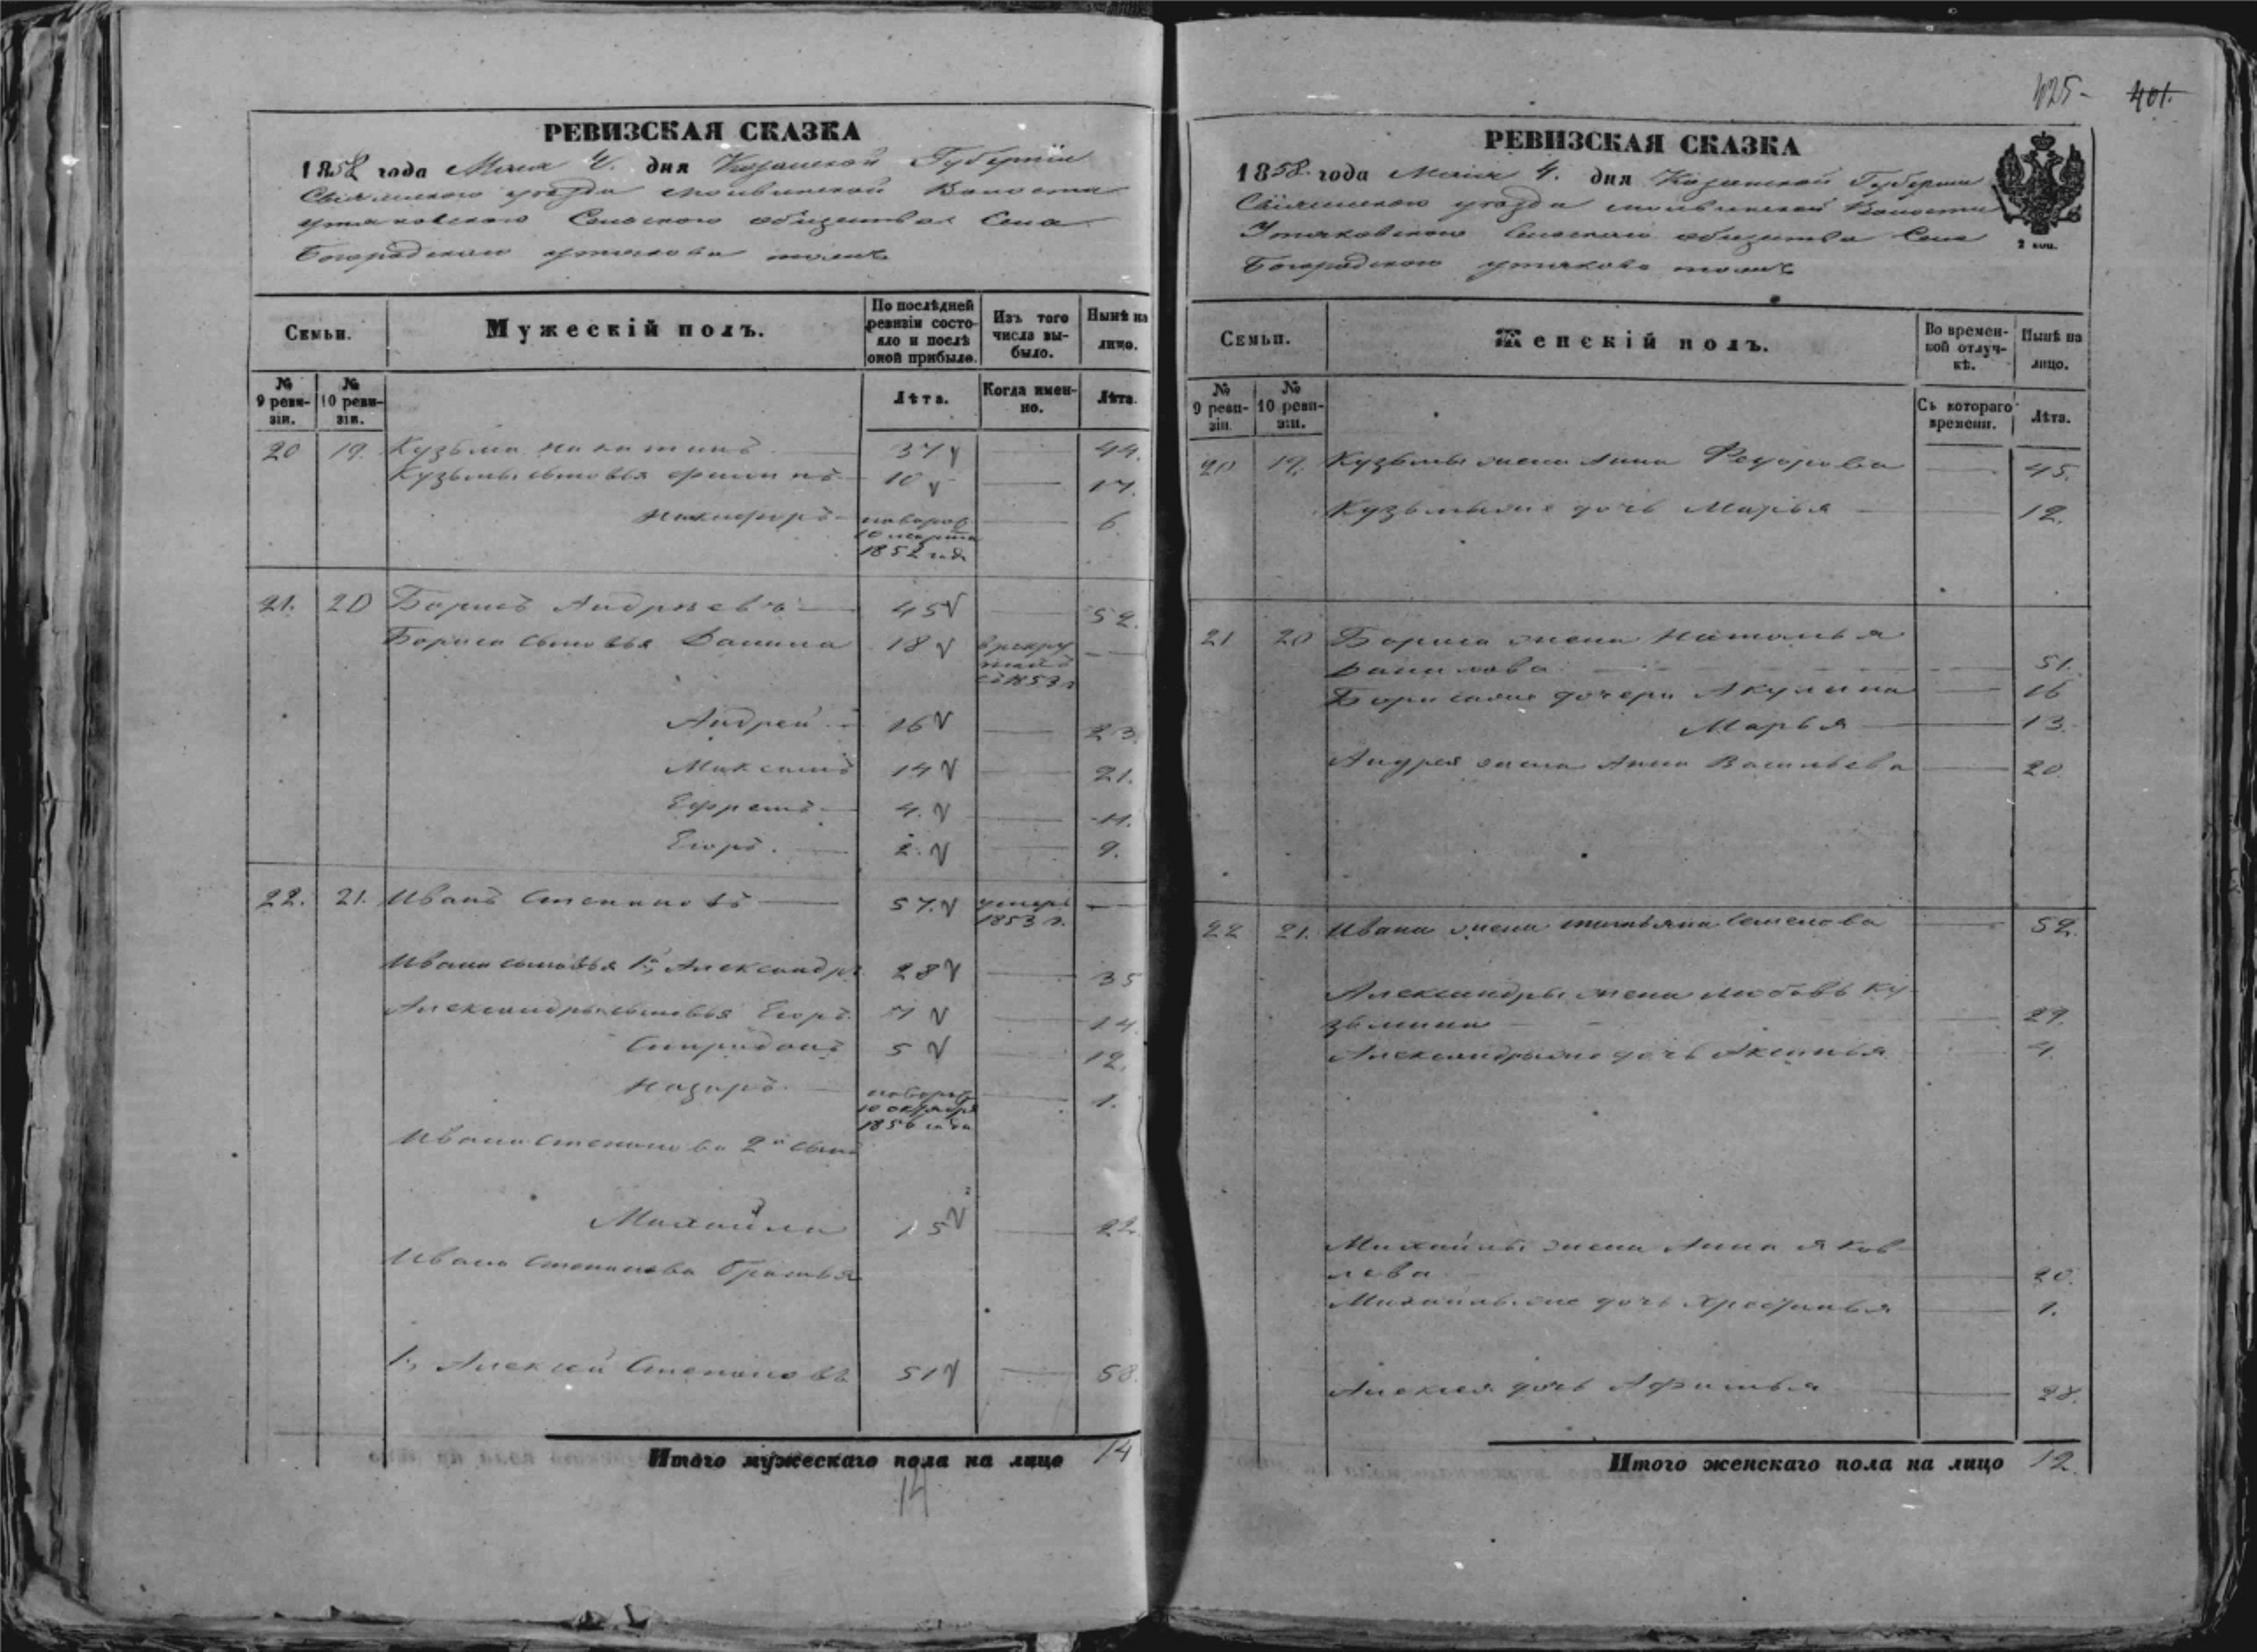 РЕВИЗСКАЯ СКАЗКА
1858 года Мая 4. дня Казанской Губерніи
Свіяжскаго уезда Волости
Утяковскаго Сельскаго общества Села
Богородскаго утякова тожъ
Семьи.
Мужескій полъ.
По послѣдней ревизіи состояло и послѣ оной прибыло.
Изъ того числа выбыло.
Нынѣ на лицо.
№ 9 ревизіи.
№ 10 ревизіи.
Лѣта.
Когда именно.
Лѣта.
20 19. Кузьма Никитинъ 37 44.
Кузьмы сыновья Филипъ 10 17.
Никифоръ новорож. 10 марта 1852 года 6
21. 20 Борисъ Андреевъ 45 52.
Бориса сыновья Данила 18 в рекрутахъ съ 1853 г
Андрей 16 23.
Максимъ 14 21.
Ефремъ 4. 11.
Егоръ. 2. 9.
22. 21. Иванъ Степановъ 57. умеръ 1853 г.
Ивана сыновья 1й Александръ 28 35
Александры сыновья Егоръ 7 14.
Спиридонъ 5 12.
Назаръ новорож 10 октября 1856 года 1.
Ивана Степанова 2й сынъ
Михайла 15 22
Ивана Степанова братья
1, Алексей Степановъ 51 58.
Итого мужескаго пола на лицо 14
14
425 401.
РЕВИЗСКАЯ СКАЗКА
1858 года Мая 4. дня Казанской Губерніи
Свіяжскаго уезда Волости
Утяковскаго Сельскаго общества Села
Богородскаго утякова тожъ
2 коп.
Семьи.
Женскій полъ.
Во временной отлучкѣ.
Нынѣ на лицо.
№ 9 ревизіи.
№ 10 ревизіи.
Съ котораго времени.
Лѣта.
20 19. Кузьмы жена Анна Федорова 45.
Кузьмы же дочь Марья 12.
21 20 Бориса жена Наталья
Данилова 51.
Бориса же дочери Акулина 16
Марья 13.
Андрея жена Анна Васильева 20.
22 21. Ивана жена Татьяна Семенова 52.
Александры жена Любовь Ку-
зьмина 29.
Александры же дочь Аксинья 4.
Михайлы жена Анна Яков-
лева 20.
Михайлы же дочь 1.
Алексея дочь 28.
Итого женскаго пола на лицо 12.